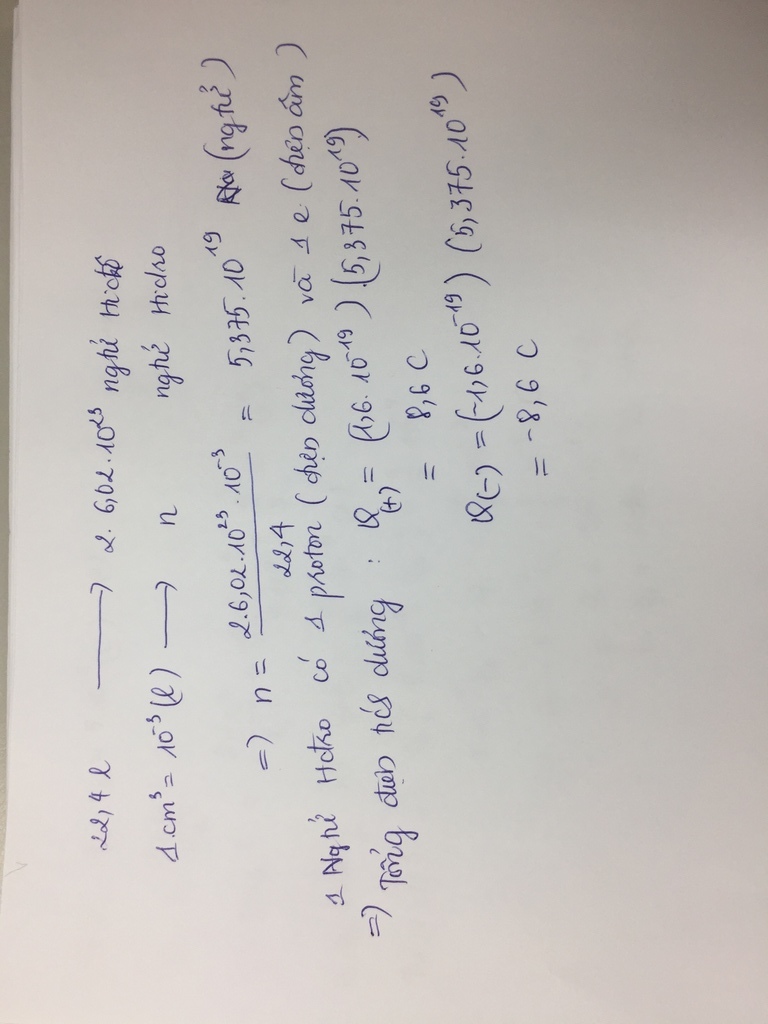 22,4 l ⟶ 2. 6,02.10²³ nghtử Hidrô
1 cm³ = 10⁻³ (l) ⟶ n nghtử Hidro
=) n = 2.6,02.10²³.10⁻³ / 22,4 = 5,375.10¹⁹ (nghtử)
1 Nghtử Hdro có 1 proton (điện dương) và 1 e (điện âm)
=) Tổng điện tích dương : Q(+) = (1,6.10⁻¹⁹)(5,375.10¹⁹)
= 8,6 C
Q(-) = (-1,6.10⁻¹⁹) (5,375.10¹⁹)
= -8,6 C